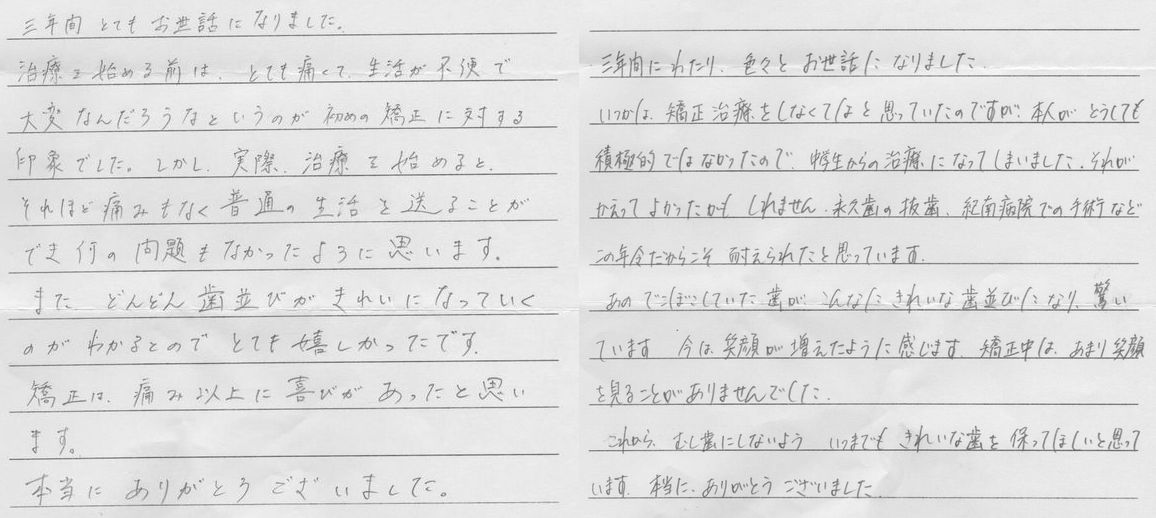 三年間 とても お世話に なりました。
治療を 始める 前は、とても 痛くて、生活が 不便で
大変 なんだろうな というのが 初めの 矯正 に 対する
印象 でした。しかし、実際、治療 を 始めると、
それほど 痛みもなく 普通の 生活 を 送ることが
でき 何の 問題も なかったように 思います。
また、どんどん 歯並びが きれいに なっていく
のが わかるとので とても 嬉しかったです。
矯正は、痛み以上に 喜びが あったと 思い
ます。
本当に ありがとう ございました。
三年間に わたり、色々と お世話に なりました。
いつかは、矯正治療をしなくてはと思っていたのですが、本人が どうしても
積極的ではなかったので、中学生からの治療になってしまいました。それが
かえって よかったかも しれません。永久歯の抜歯、紀南病院での手術など
この年令だからこそ 耐えられたと思っています。
あの でこぼこしていた 歯が こんなに きれいな歯並びになり、驚い
ています 今は、笑顔が増えたように感じます。矯正中は、あまり笑顔
を見ることがありませんでした。
これから、むし歯にしないよう いつまでも きれいな歯を 保ってほしいと思って
います。本当に、ありがとう ございました。